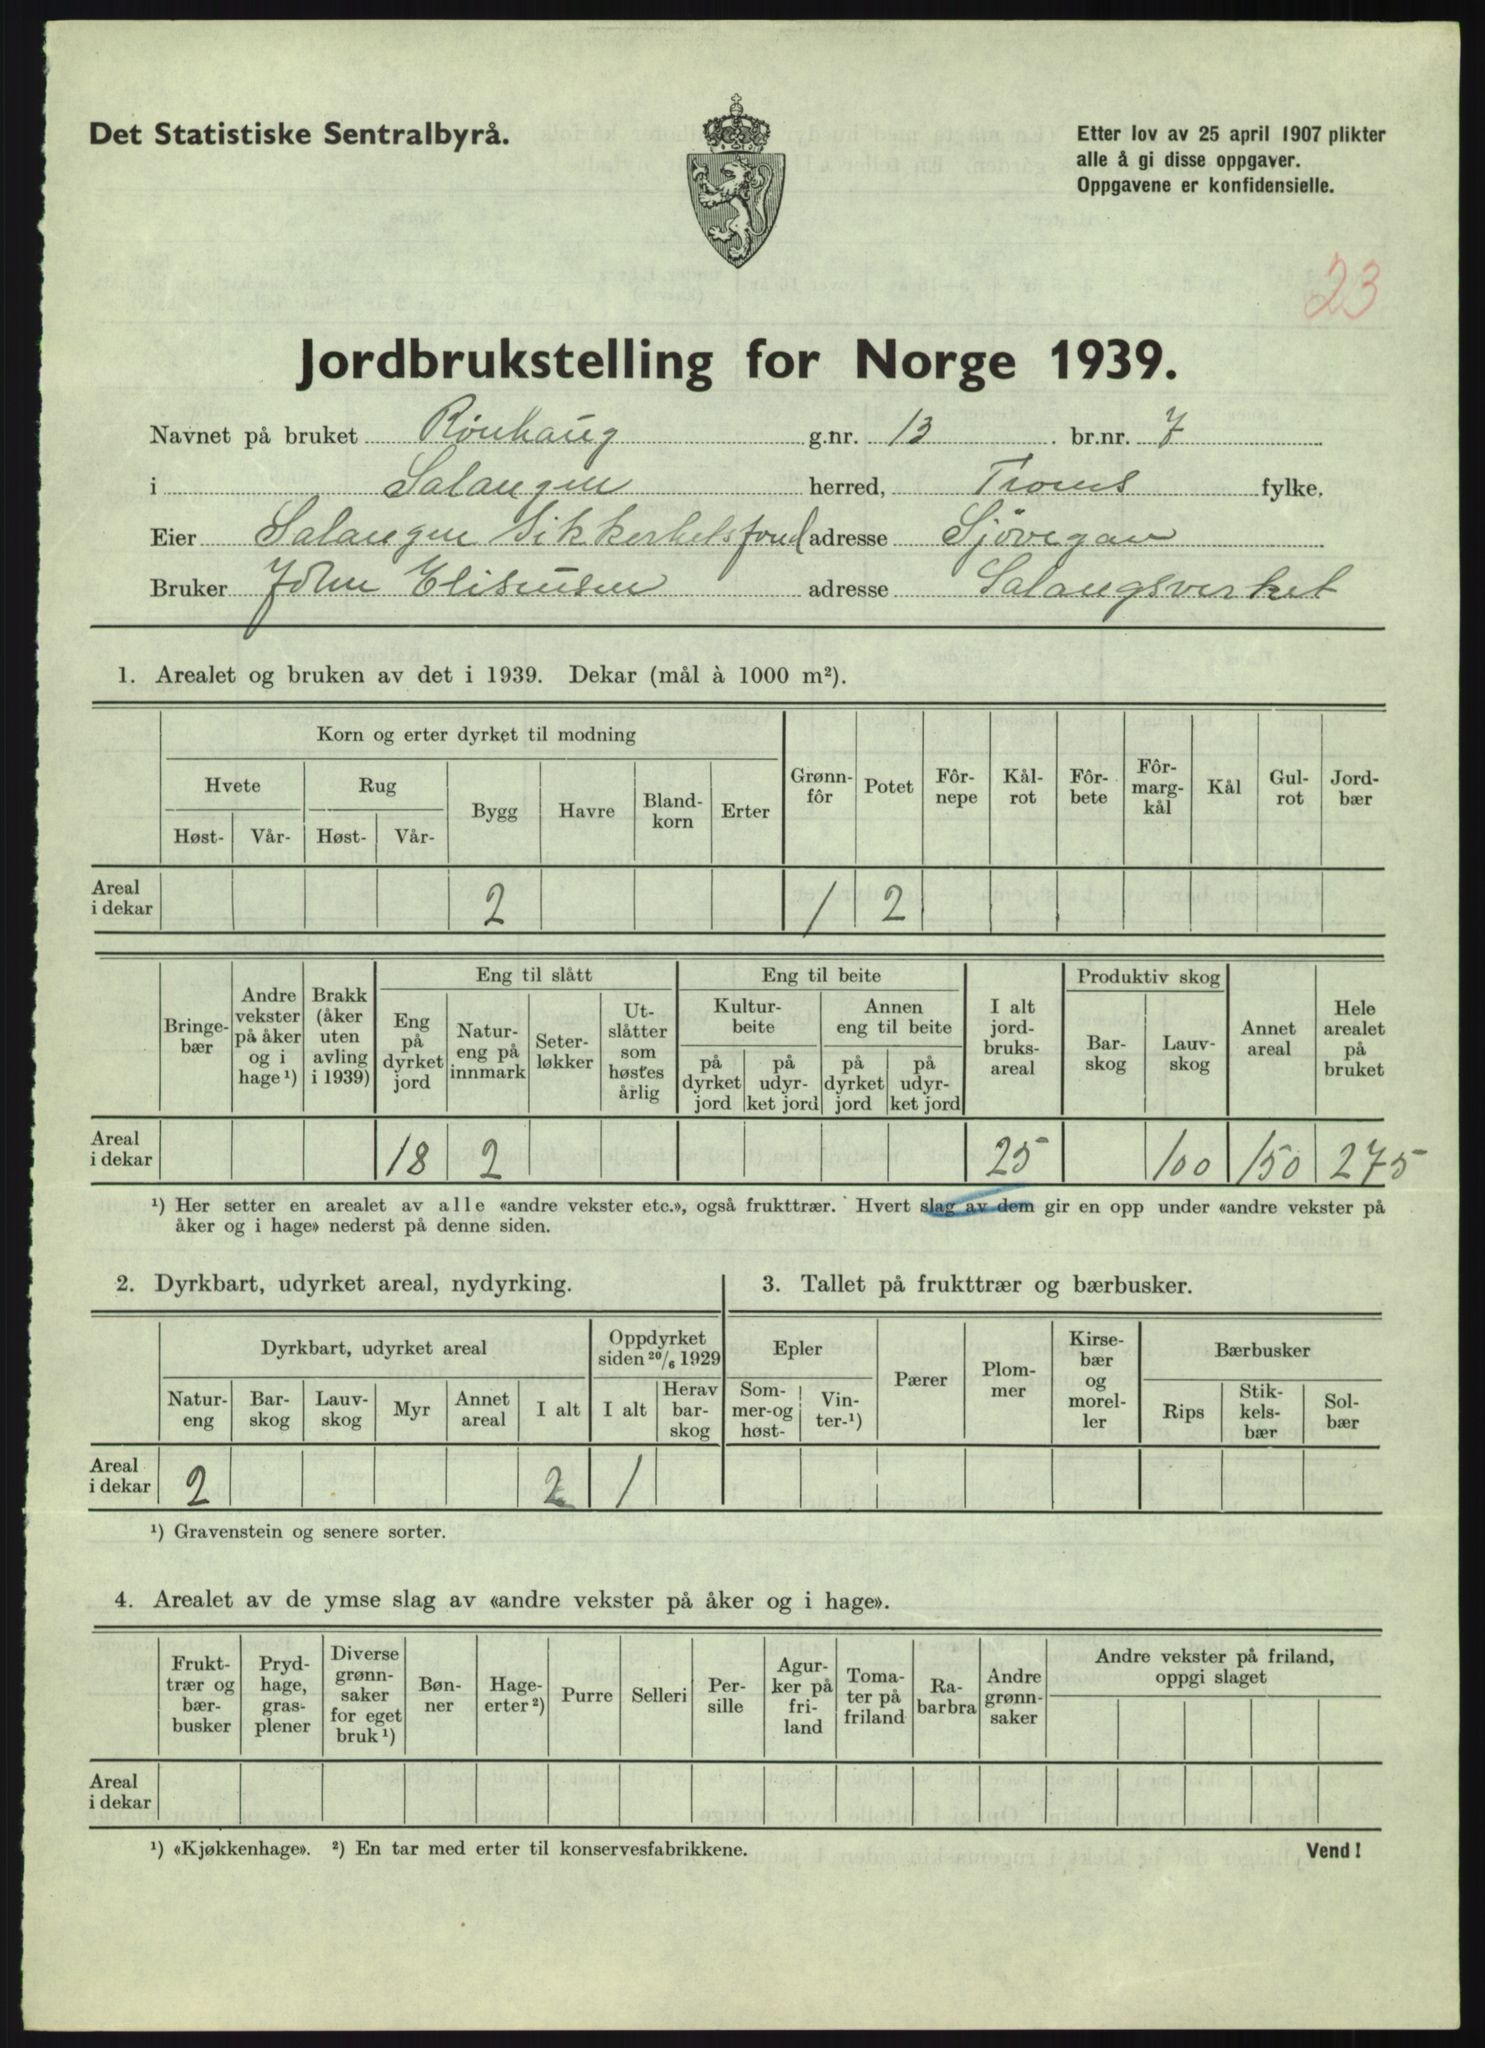 Det Statistiske Sentralbyrå.
Etter lov av 25 april 1907 plikter
alle å gi disse oppgaver.
Oppgavene er konfidensielle.
23
Jordbrukstelling for Norge 1939.
Navnet på bruket Rönhaug g.nr. 13 br.nr. 7
i Salangen herred, Troms fylke.
Eier Salangen Sikkerhetsfond adresse Sjövegan
Bruker John Eliseusen adresse Salangsverket
1. Arealet og bruken av det i 1939. Dekar (mål à 1000 m²).
Korn og erter dyrket til modning
Hvete
Rug
Høst-
Vår-
Høst-
Vår-
Bygg
Havre
Bland-
korn
Erter
Grønn-
fôr
Potet
Fôr-
nepe
Kål-
rot
Fôr-
bete
Fôr-
marg-
kål
Kål
Gul-
rot
Jord-
bær
Areal
i dekar
2
1
2
Bringe-
bær
Andre
vekster
på åker
og i
hage ¹)
Brakk
(åker
uten
avling
i 1939)
Eng til slått
Eng
på
dyrket
jord
Natur-
eng på
innmark
Seter-
løkker
Ut-
slåtter
som
høstes
årlig
Eng til beite
Kultur-
beite
på
dyrket
jord
på
udyr-
ket jord
Annen
eng til beite
på
dyrket
jord
på
udyr-
ket jord
I alt
jord-
bruks-
areal
Produktiv skog
Bar-
skog
Lauv-
skog
Annet
areal
Hele
arealet
på
bruket
Areal
i dekar
18
2
25
100
150
275
¹) Her setter en arealet av alle «andre vekster etc.», også frukttrær. Hvert slag av dem gir en opp under «andre vekster på
åker og i hage» nederst på denne siden.
2. Dyrkbart, udyrket areal, nydyrking.
Dyrkbart, udyrket areal
Natur-
eng
Bar-
skog
Lauv-
skog
Myr
Annet
areal
I alt
Oppdyrket
siden 20/6 1929
I alt
Herav
bar-
skog
Areal
i dekar
2
2
1
¹) Gravenstein og senere sorter.
3. Tallet på frukttrær og bærbusker.
Epler
Som-
mer-og
høst-
Vin-
ter-¹)
Pærer
Plom-
mer
Kirse-
bær
og
morel-
ler
Bærbusker
Rips
Stik-
kels-
bær
Sol-
bær
4. Arealet av de ymse slag av «andre vekster på åker og i hage».
Frukt-
trær og
bær-
busker
Pryd-
hage,
gras-
plener
Diverse
grønn-
saker
for eget
bruk ¹)
Bøn-
ner
Hage-
erter ²)
Purre
Selleri
Per-
sille
Agur-
ker på
fri-
land
Toma-
ter på
friland
Ra-
barbra
Andre
grønn-
saker
Andre vekster på friland,
oppgi slaget
Areal
i dekar
¹) «Kjøkkenhage». ²) En tar med erter til konservesfabrikkene.
Vend!